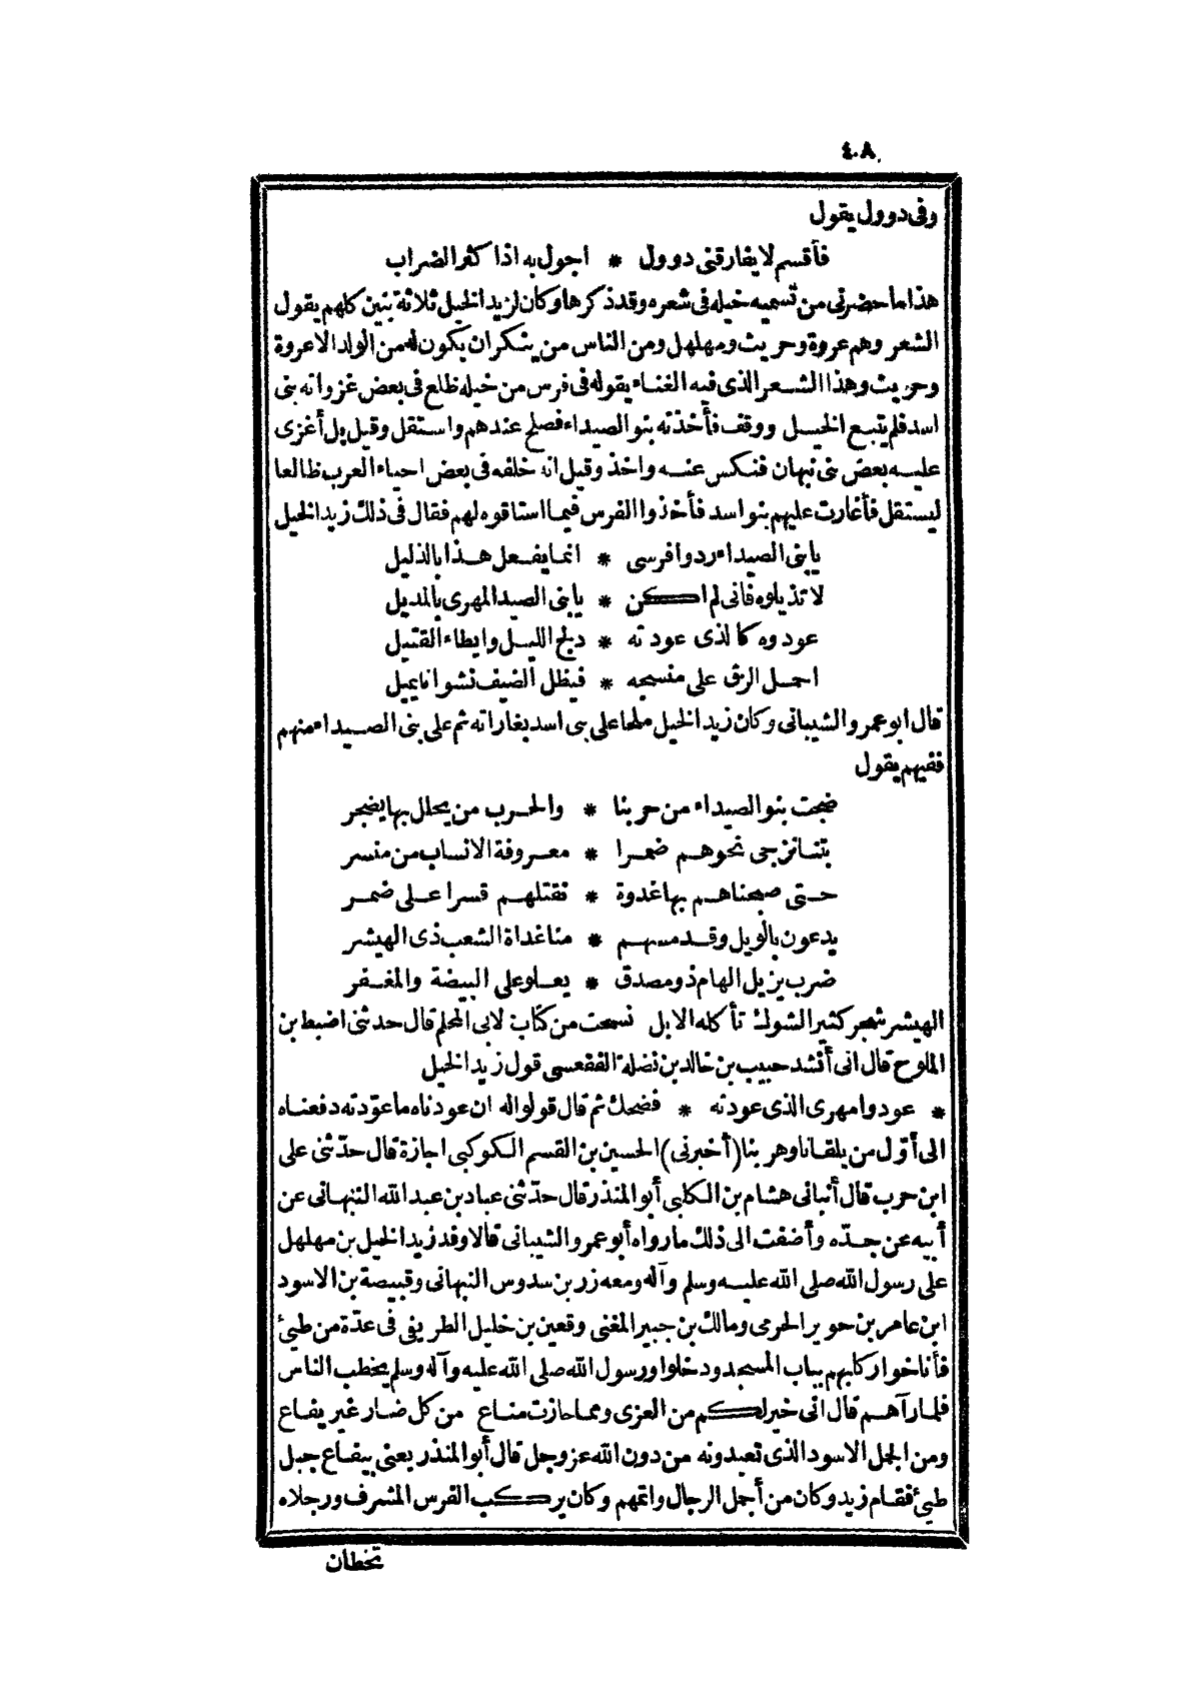 ٤٠٨
وفى دوول يقول
فأقسم لا يفارقنى دوول * اجول به اذا كثر الضراب
هذا ما حضرنى من تسميه خيله فى شعره وقد ذكرها وكان لزيد الخيل ثلاثة بنين كلهم يقول
الشعر وهم عروة وحريث ومهلهل ومن الناس من ينكر ان يكون له من الولد الا عروة
وحريث وهذا الشعر الذى فيه الغناء يقوله فى فرس من خيله ظلع فى بعض غزواته بنى
اسد فلم يتبع الخيل ووقف فأخذته بنو الصيداء فصلح عندهم واستقل وقيل بل أغزى
عليه بعض بنى نبهان فنكس عنه واخذ وقيل انه خلفه فى بعض احياء العرب ظالعا
ليستقل فأغارت عليهم بنو اسد فأخذوا الفرس فيما استاقوه لهم فقال فى ذلك زيد الخيل
يا بنى الصيداء ردوا فرسى * انما يفعل هذا بالذليل
لا تذيلوه فانى لم اكن * يا بنى الصيد المهرى بالمديل
عودوه كالذى عودته * دلج الليل وايطاء القتيل
احمل الزق على منسجه * فيظل الضيف نشوانا يميل
قال ابو عمرو الشيبانى وكان زيد الخيل ملحا على بنى اسد بغاراته ثم على بنى الصيداء منهم
ففيهم يقول
ضجت بنو الصيداء من حربنا * والحرب من يحلل بها يضجر
بتنا نزجى نحوهم ضمرا * معروفة الانساب من منسر
حتى صبحناهم بها غدوة * نقتلهم قسرا على ضمر
يدعون بالويل وقد مسهم * منا غداة الشعب ذى الهيشر
ضرب يزيل الهام ذو مصدق * يعلو على البيضة والمغفر
الهيشر شجر كثير الشوك تأكله الابل نسخت من كتاب لابى المحلم قال حدثنى اضبط بن
الملوح قال انى أنشد حبيب بن خالد بن نضلة الفقعسى قول زيد الخيل
* عودوا مهرى الذى عودته * فضحك ثم قال قولوا له ان عودناه ما عوّدته دفعناه
الى أوّل من يلقانا وهربنا (أخبرنى) الحسين بن القسم الكوكبى اجازة قال حدّثنى على
ابن حرب قال أنبانى هشام بن الكلبى أبو المنذر قال حدّثنى عباد بن عبد الله النبهانى عن
أبيه عن جدّه وأضفت الى ذلك ما رواه أبو عمرو الشيبانى قالا وفد زيد الخيل بن مهلهل
على رسول الله صلى الله عليه وسلم وآله ومعه زر بن سدوس النبهانى وقبيصة بن الاسود
ابن عامر بن جوير الجرمى ومالك بن جبير المغنى وقعين بن خليل الطريفى فى عدّة من طيئ
فأناخوا ركابهم بباب المسجد ودخلوا ورسول الله صلى الله عليه وآله وسلم يخطب الناس
فلما رآهم قال انى خير لكم من العزى ومما حازت مناع من كل ضار غير يفاع
ومن الجمل الاسود الذى تعبدونه من دون الله عز وجل قال أبو المنذر يعنى بيفاع جبل
طيئ فقام زيد وكان من أجمل الرجال واتمهم وكان يركب الفرس المشرف ورجلاه
تخطان